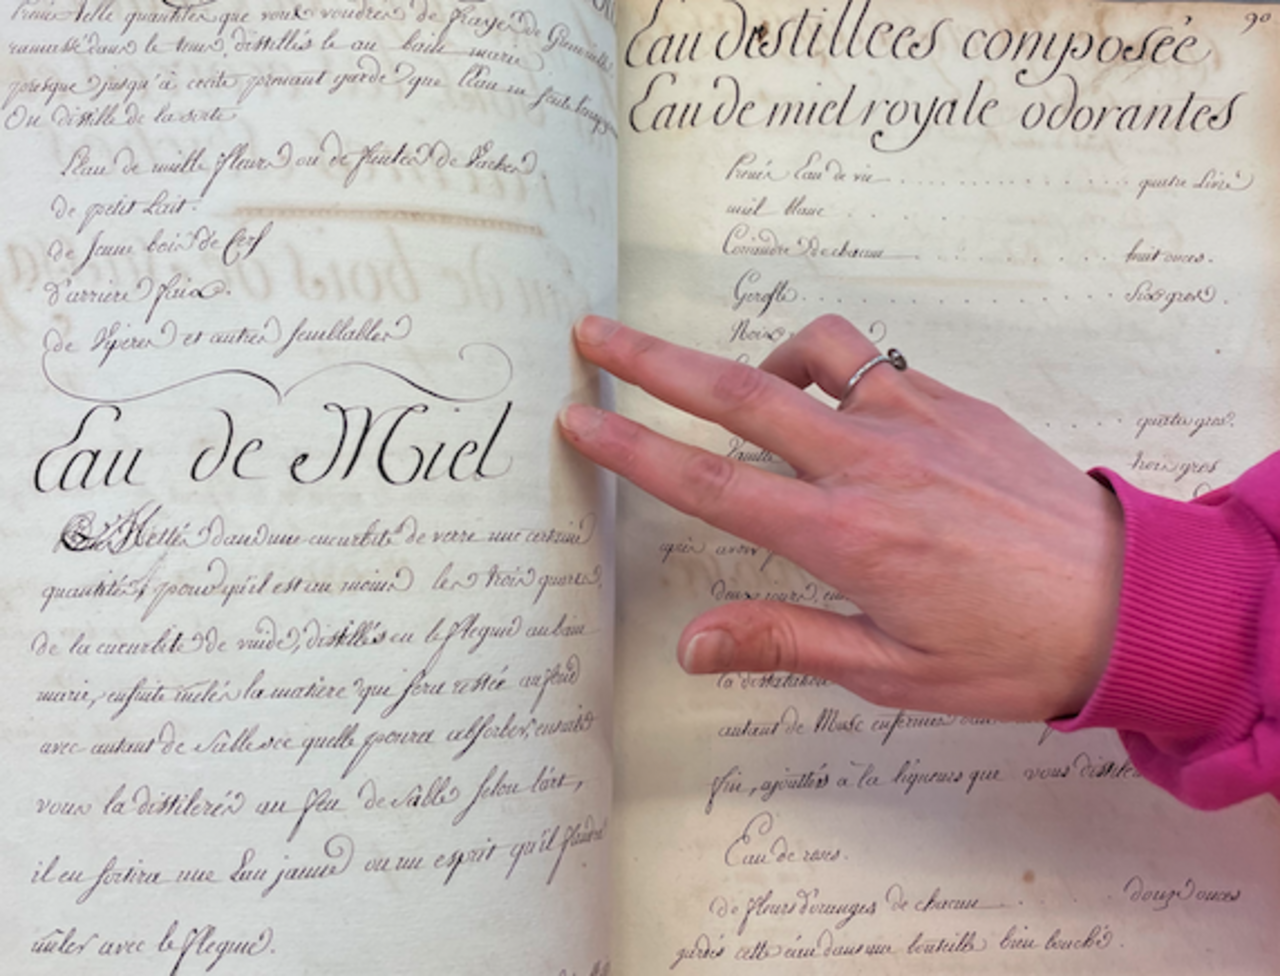 telle quantité que vous voudrez de frayes de
ramassé dans le tems distillés le au bain marie
presque jusqu'à cecité prenant garde que l'Eau ne sente
On distille de la sorte
L'eau de mille fleurs ou de fientes de Vaches.
de petit Lait.
de Jeune bois de Cerf
d'arriere faix.
de Viperes et autres semblables
Eau de Miel
Mettés dans une cucurbite de verre une certaine
quantités, pour qu'il est au moins les trois quarts,
de la cucurbite de vuide, distillés en le flegme au bain
marie, ensuite mélés la matiere que sera restée au fond
avec autant de Sable sec quelle poura absorber, ensuite
vous la distilerés au feu de sable selon l'art,
il en sortira une Eau jaune ou un esprit qu'il faudra
mêler avec le flegme.
90
Eau distillées composée
Eau de miel royale odorantes
Prenés Eau de vie . . . . . . . . . . . . quatre Livres
miel blanc . . . .
Coriandre de chacun . . . . . . huit onces.
Gerofle . . . . . . . . . . . . Six gros.
Noix
. . . . quatre gros.
Vanille trois gros
deux jours,
la distillation
autant de Musc enfermés dans
fin, ajouttés à la liqueurs que vous
Eau de roses.
de fleurs d'oranges de chacun . . . . douze onces
gardés cette eau dans une bouteille bien bouché.